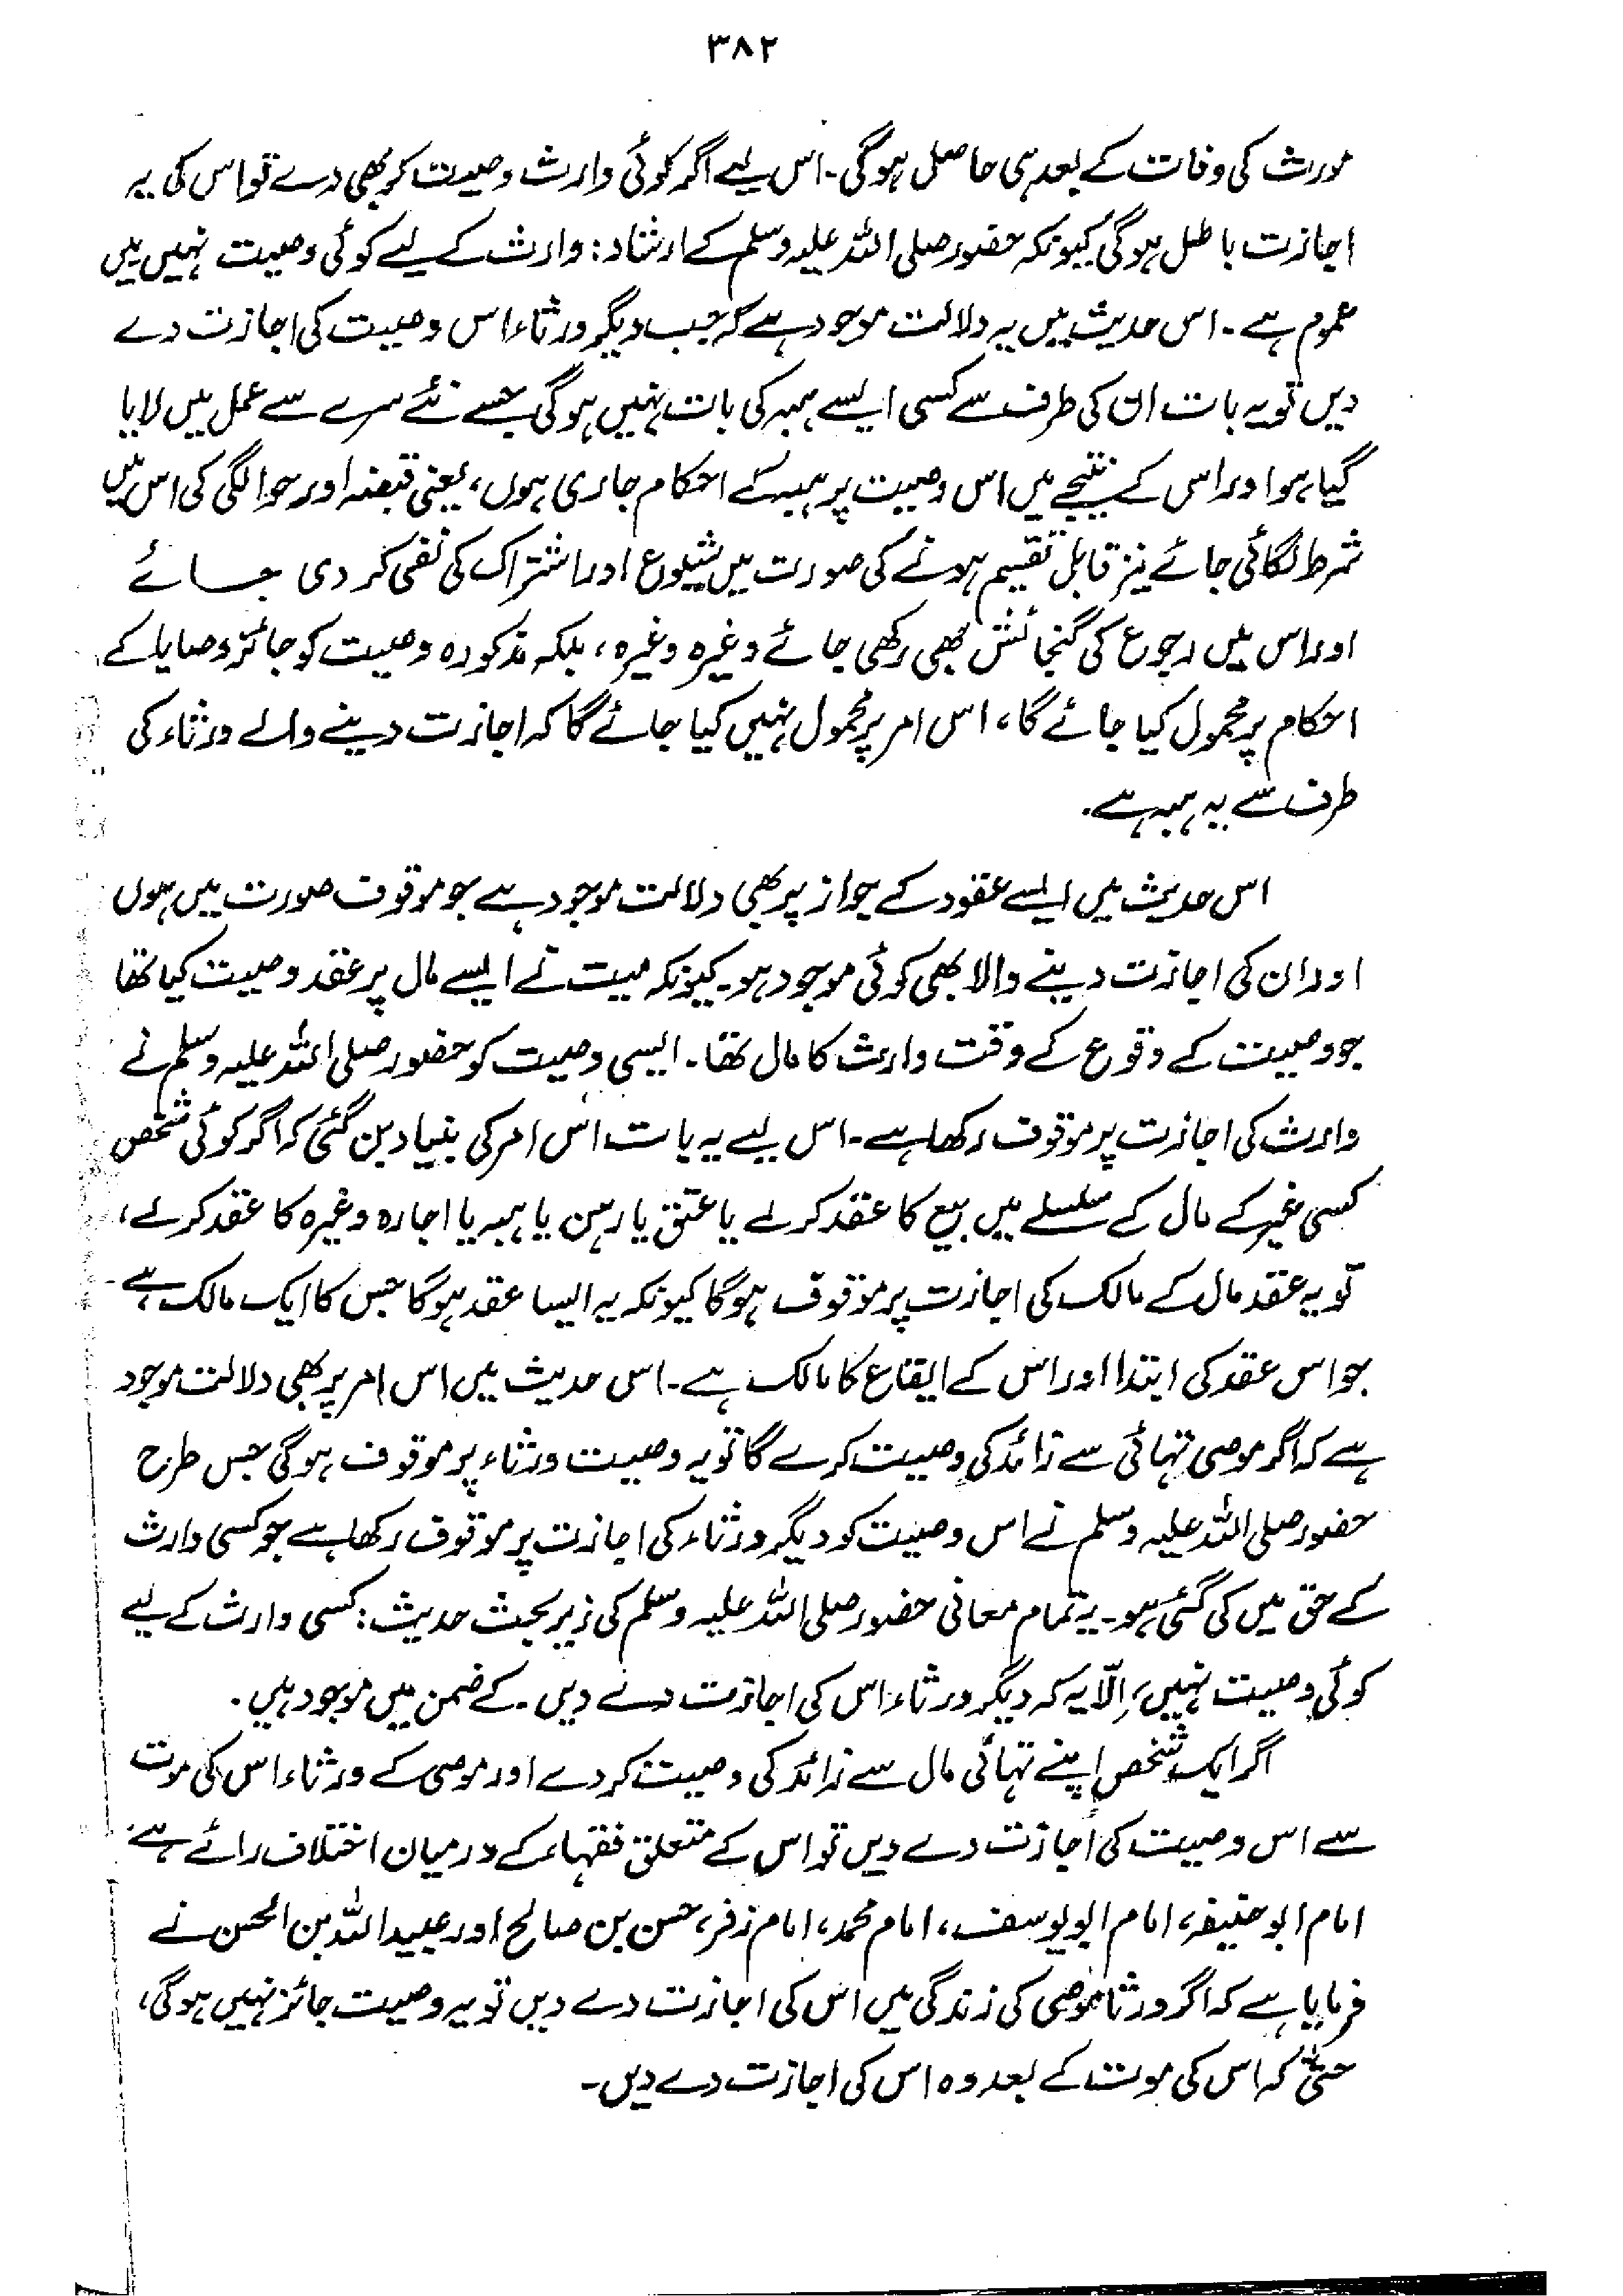 ۳۸۲
مورث کی وفات کے بعد ہی حاصل ہوگی۔ اس لیے اگر کوئی وارث وصیت کر بھی دے تو اس کی یہ
اجازت باطل ہوگی کیونکہ حضور صلی اللہ علیہ وسلم کے ارشاد: وارث کے لیے کوئی وصیت نہیں میں
عموم ہے۔ اس حدیث میں یہ دلالت موجود ہے کہ جب دیگر ورثاء اس وصیت کی اجازت دے
دیں تو یہ بات ان کی طرف سے کسی ایسے ہبہ کی بات نہیں ہوگی جسے نئے سرے سے عمل میں لایا
گیا ہو اور اس کے نتیجے میں اس وصیت پر ہبہ کے احکام جاری ہوں، یعنی قبضہ اور حوالگی کی اس میں
شرط لگائی جائے نیز قابل تقسیم ہونے کی صورت میں شیوع اور اشتراک کی نفی کر دی جائے
اور اس میں رجوع کی گنجائش بھی رکھی جائے وغیرہ وغیرہ، بلکہ مذکورہ وصیت کو جائز وصایا کے
احکام پر محمول کیا جائے گا، اس امر پر محمول نہیں کیا جائے گا کہ اجازت دینے والے ورثاء کی
طرف سے یہ ہبہ ہے۔
اس حدیث میں ایسے عقود کے جواز پر بھی دلالت موجود ہے جو موقوف صورت میں ہوں
اور ان کی اجازت دینے والا بھی کوئی موجود ہو۔ کیونکہ میت نے ایسے مال پر عقد وصیت کیا تھا
جو وصیت کے وقوع کے وقت وارث کا مال تھا۔ ایسی وصیت کو حضور صلی اللہ علیہ وسلم نے
وارث کی اجازت پر موقوف رکھا ہے۔ اس لیے یہ بات اس امر کی بنیاد بن گئی کہ اگر کوئی شخص
کسی غیر کے مال کے سلسلے میں بیع کا عقد کرلے یا عتق یا رہن یا ہبہ یا اجارہ وغیرہ کا عقد کرلے،
تو یہ عقد مال کے مالک کی اجازت پر موقوف ہوگا کیونکہ یہ ایسا عقد ہوگا جس کا ایک مالک ہے
جو اس عقد کی ابتدا اور اس کے ایقاع کا مالک ہے۔ اسی حدیث میں اس امر پر بھی دلالت موجود
ہے کہ اگر موصی تہائی سے زائد کی وصیت کرے گا تو یہ وصیت ورثاء پر موقوف ہوگی جس طرح
حضور صلی اللہ علیہ وسلم نے اس وصیت کو دیگر ورثاء کی اجازت پر موقوف رکھا ہے جو کسی وارث
کے حق میں کی گئی ہو۔ یہ تمام معانی حضور صلی اللہ علیہ وسلم کی زیر بحث حدیث: کسی وارث کے لیے
کوئی وصیت نہیں، اِلّا یہ کہ دیگر ورثاء اس کی اجازت دے دیں۔ کے ضمن میں موجود ہیں۔
اگر ایک شخص اپنے تہائی مال سے زائد کی وصیت کردے اور موصی کے ورثاء اس کی موت
سے اس وصیت کی اجازت دے دیں تو اس کے متعلق فقہاء کے درمیان اختلاف رائے ہے
امام ابو حنیفہ، امام ابو یوسف، امام محمد، امام زفر، حسن بن صالح اور عبیداللہ بن الحسن نے
فرمایا ہے کہ اگر ورثا موصی کی زندگی میں اس کی اجازت دے دیں تو یہ وصیت جائز نہیں ہوگی،
حتیٰ کہ اس کی موت کے بعد وہ اس کی اجازت دے دیں۔